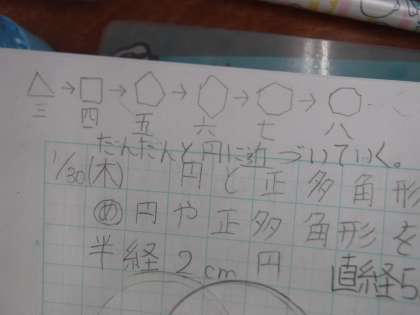 三 四 五 六 七 八
だんだんと円に近づいていく。
1/30(木) 円と正多角形
め 円や正多角形を
半経2cm円 直経5